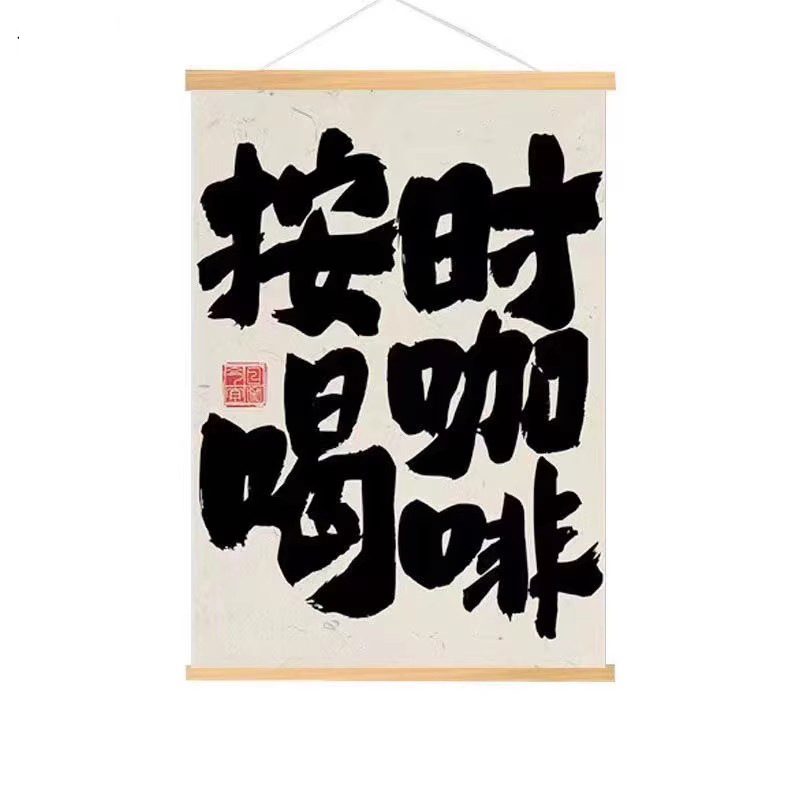 按时
喝咖啡